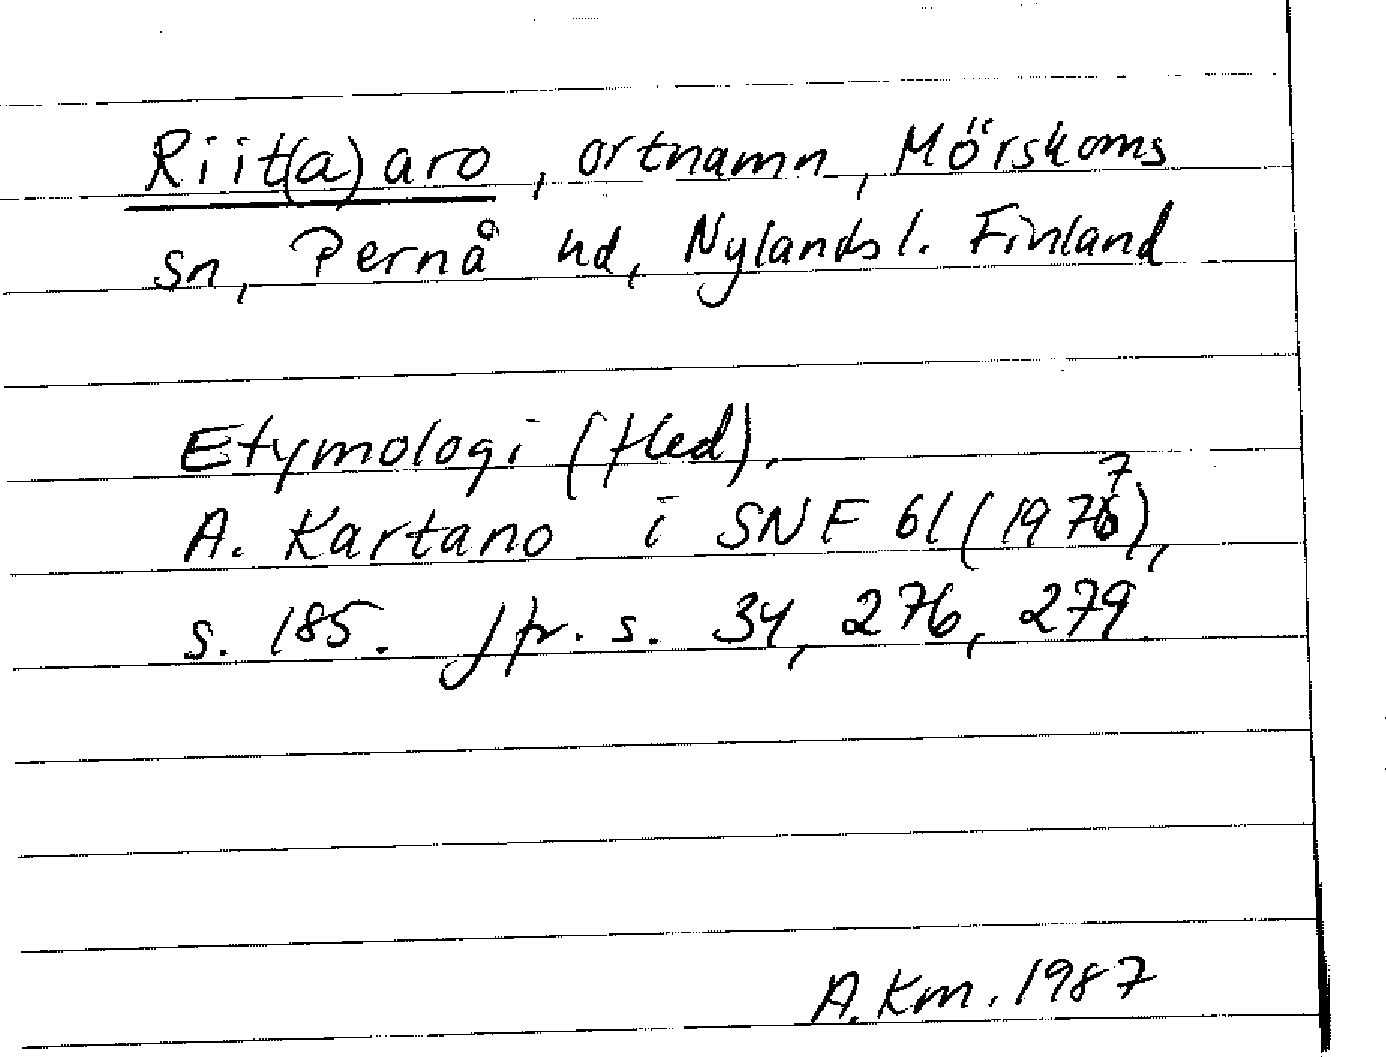 Riit(a)aro, ortnamn, Mörskoms
sn, Pernå hd, Nylands l. Finland
Etymologi (fled).
A. Kartano i SNF 61 (1977),
s. 185. Jfr. s. 34, 276, 279
A. Km. 1987